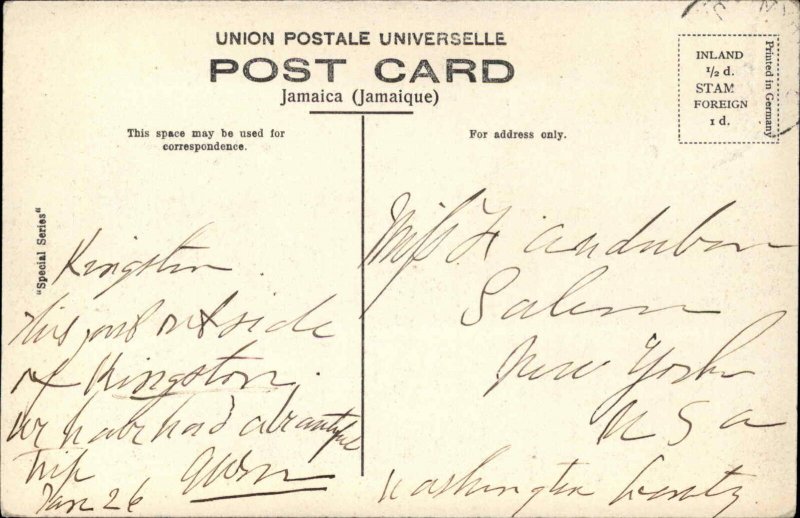 UNION POSTALE UNIVERSELLE
POST CARD
Jamaica (Jamaique)
This space may be used for
correspondence.
For address only.
INLAND
1/2 d.
STAM
FOREIGN
1 d.
Printed in Germany
"Special Series"
Kingston
this just outside
of Kingston.
We have had a beautiful
trip
Jan 26
Miss F Audubon
Salem
New York
U S A
Washington County